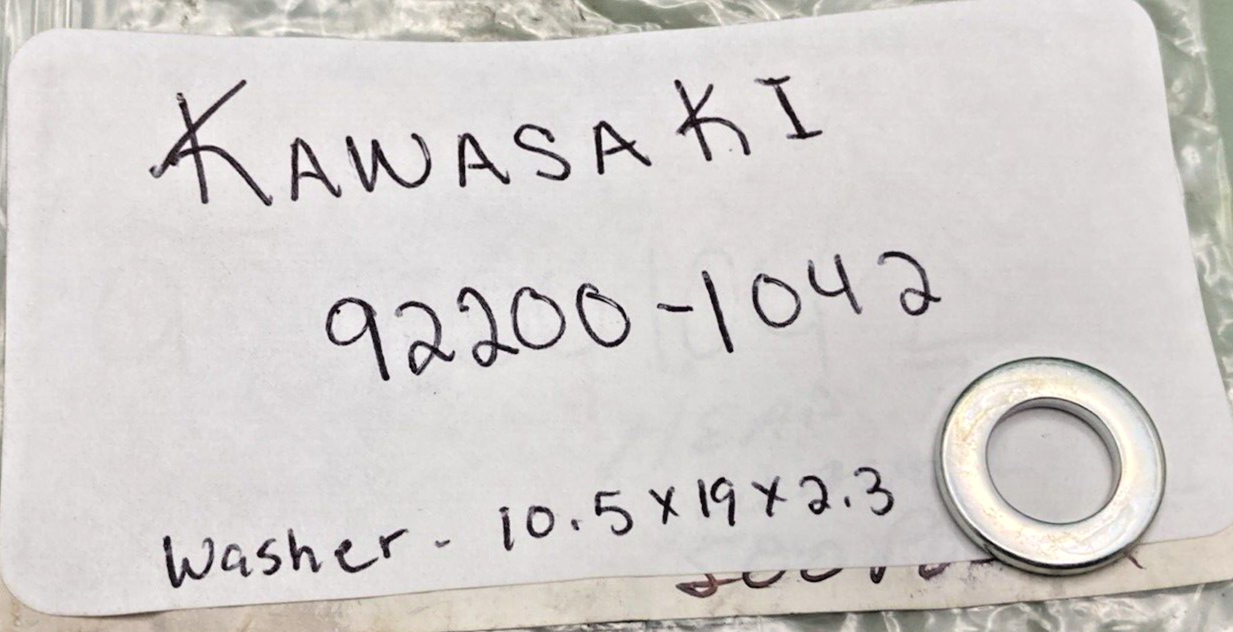 KAWASAKI
92200-1042
Washer - 10.5x19x2.3